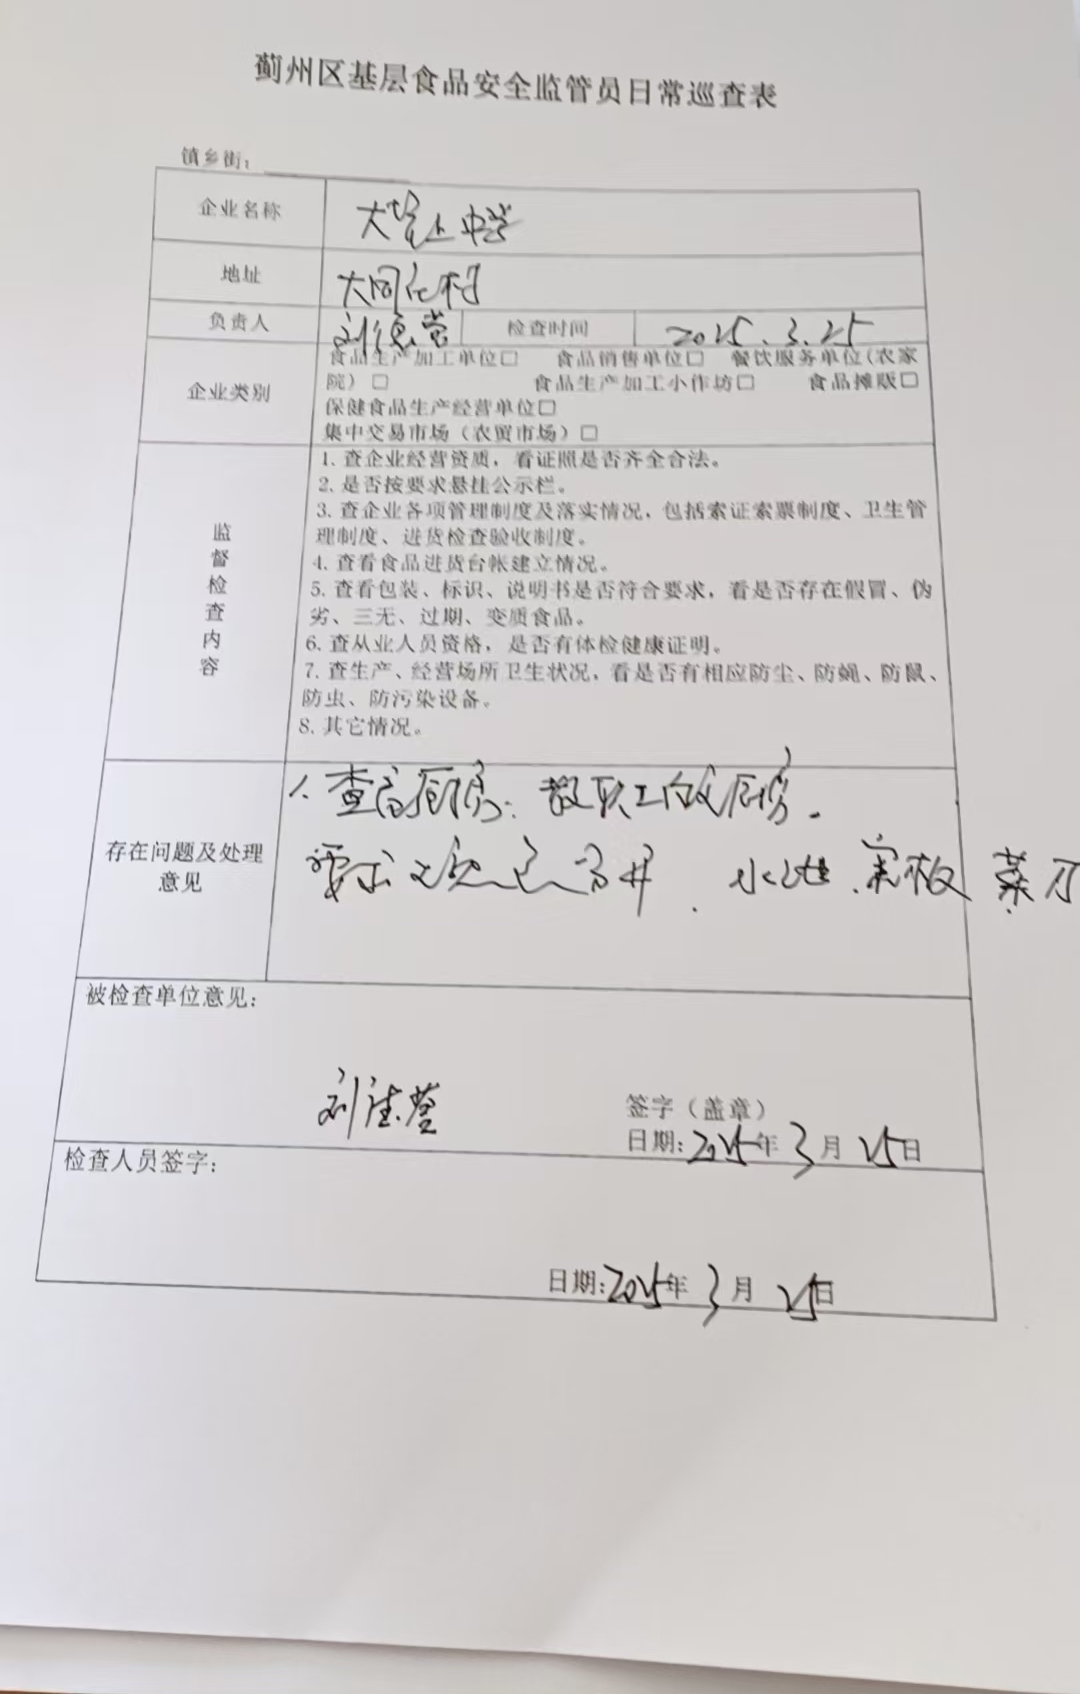 蓟州区基层食品安全监管员日常巡查表
镇乡街:
企业名称 大堼上中学
地址 大同化村
负责人 刘德营 检查时间 2025.3.25
企业类别
食品生产加工单位□ 食品销售单位□ 餐饮服务单位(农家
院)□ 食品生产加工小作坊□ 食品摊贩□
保健食品生产经营单位□
集中交易市场(农贸市场)□
监督检查内容
1. 查企业经营资质,看证照是否齐全合法。
2. 是否按要求悬挂公示栏。
3. 查企业各项管理制度及落实情况,包括索证索票制度、卫生管
理制度、进货检查验收制度。
4. 查看食品进货台帐建立情况。
5. 查看包装、标识、说明书是否符合要求,看是否存在假冒、伪
劣、三无、过期、变质食品。
6. 查从业人员资格,是否有体检健康证明。
7. 查生产、经营场所卫生状况,看是否有相应防尘、防蝇、防鼠、
防虫、防污染设备。
8. 其它情况。
存在问题及处理
意见
1. 查看厨房: 教职工的厨房.
要求 分开. 水池.案板 菜刀
被检查单位意见:
刘德营
签字(盖章)
日期:2025年3月25日
检查人员签字:
日期:2025年3月25日